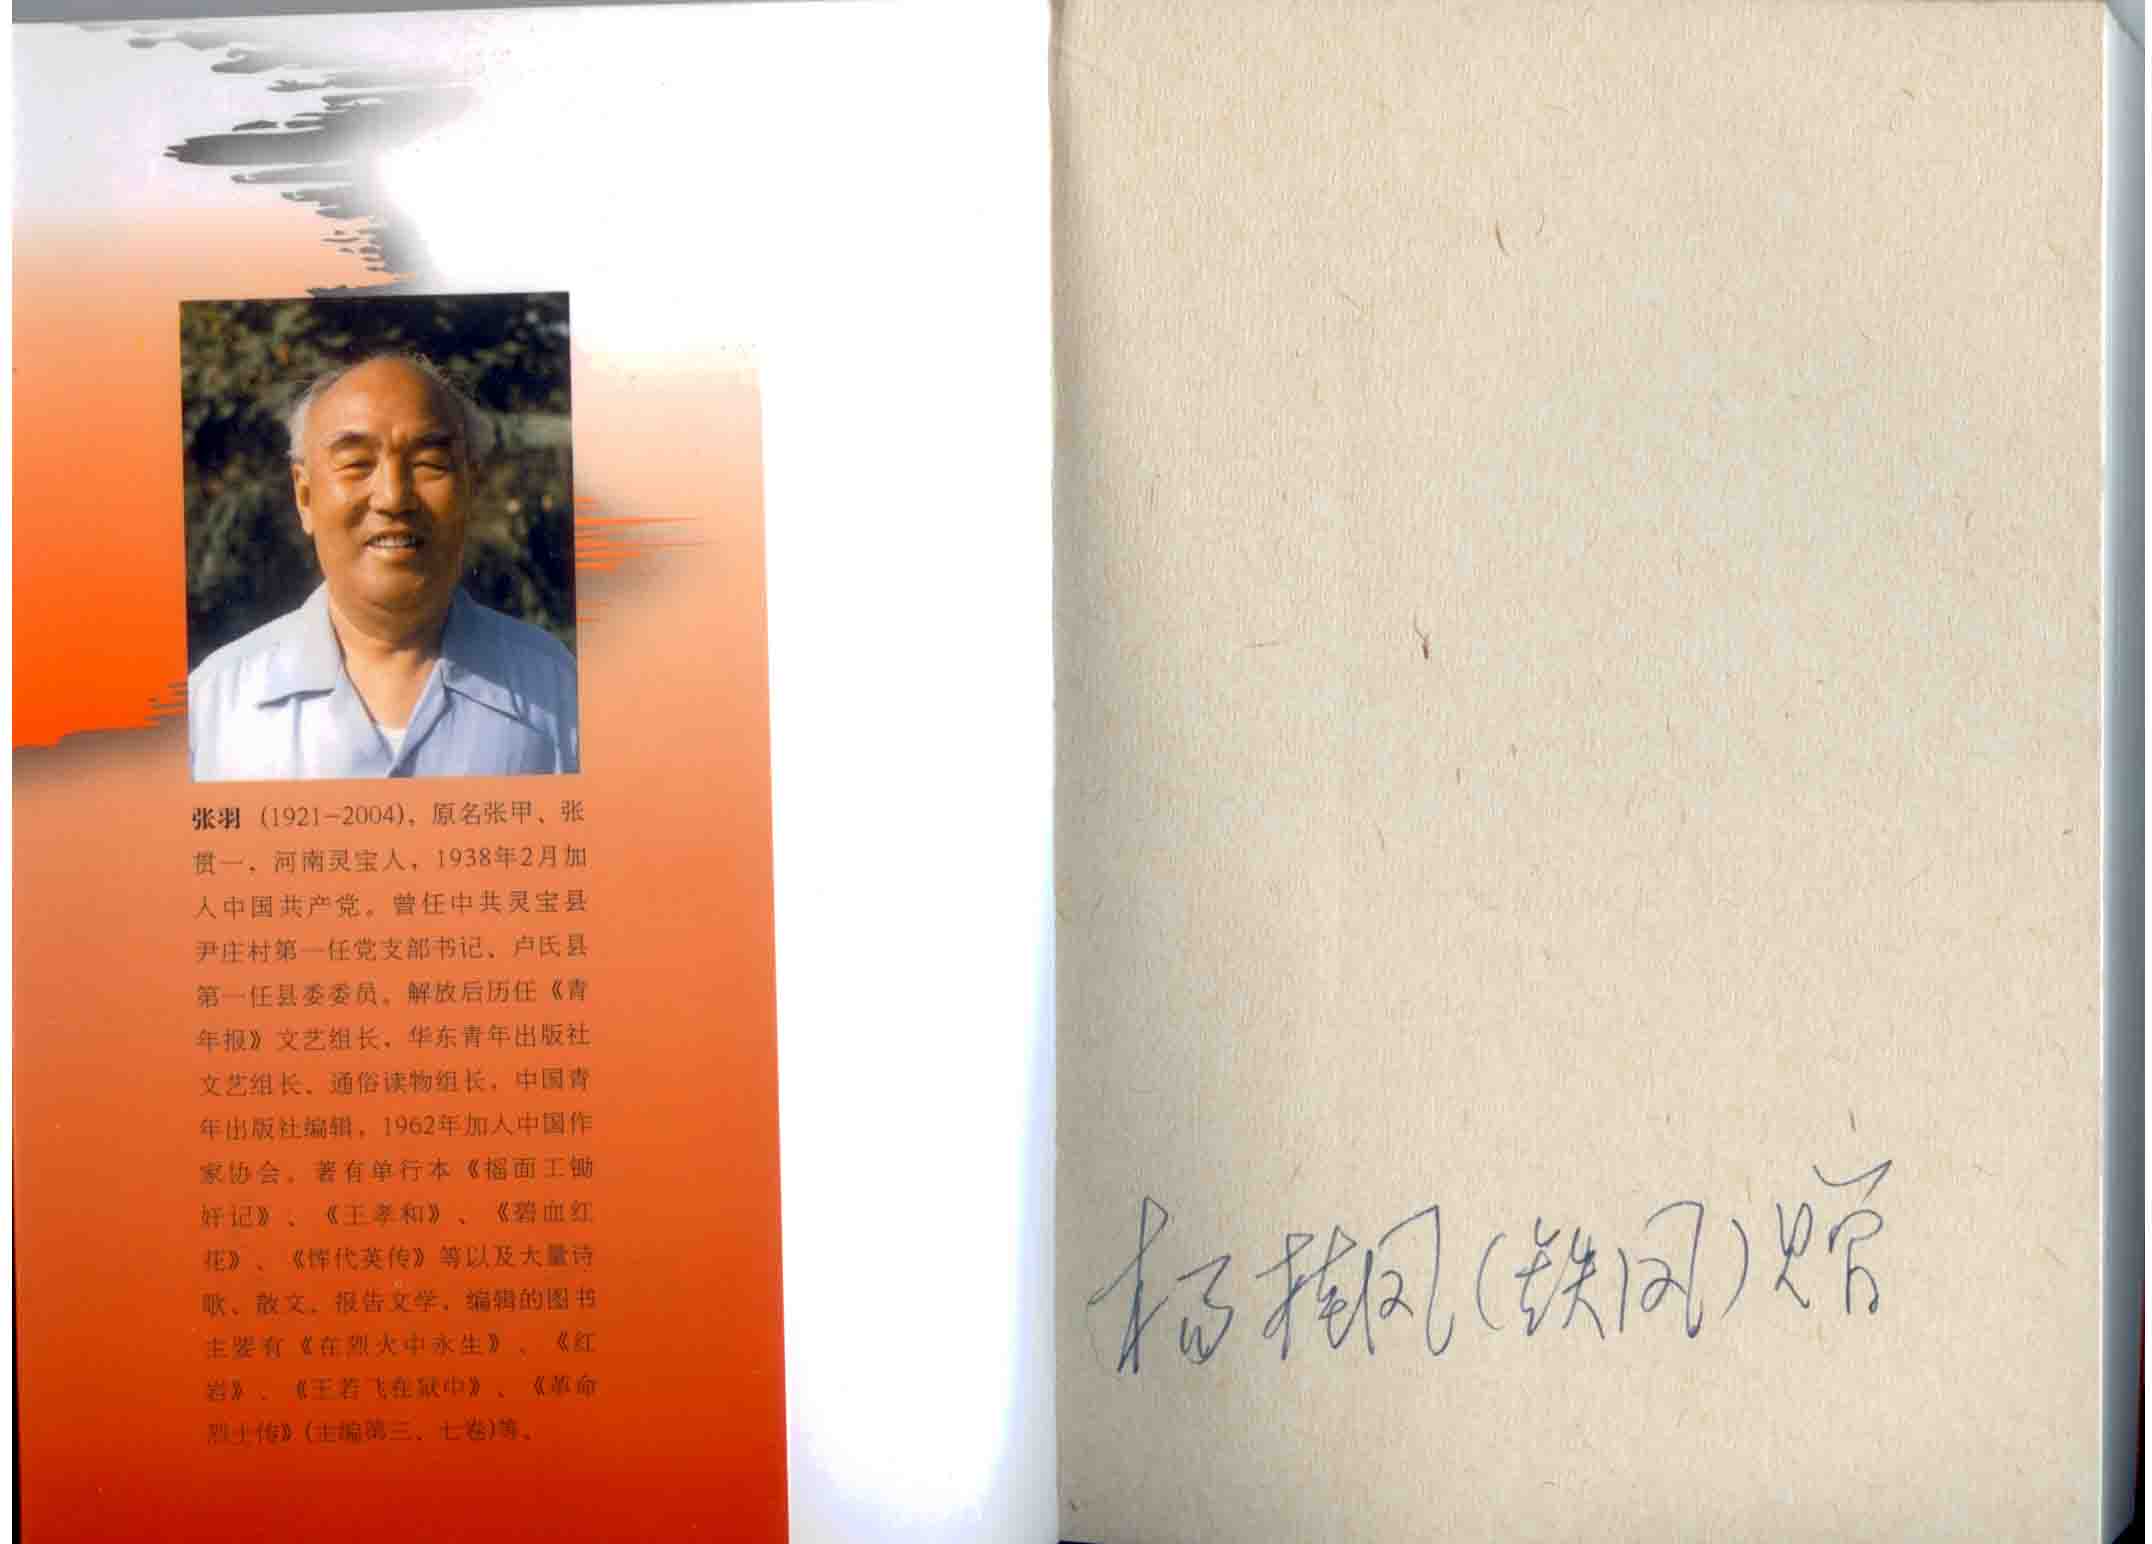 张羽 (1921—2004)，原名张甲、张
贯一，河南灵宝人，1938年2月加
入中国共产党。曾任中共灵宝县
尹庄村第一任党支部书记、卢氏县
第一任县委委员。解放后历任《青
年报》文艺组长，华东青年出版社
文艺组长、通俗读物组长，中国青
年出版社编辑，1962年加入中国作
家协会。著有单行本《摇面工锄
奸记》、《王孝和》、《碧血红
花》、《恽代英传》等以及大量诗
歌、散文、报告文学，编辑的图书
主要有《在烈火中永生》、《红
岩》、《王若飞在狱中》、《革命
烈士传》(主编第三、七卷)等。
杨桂凤(铁凤)赠